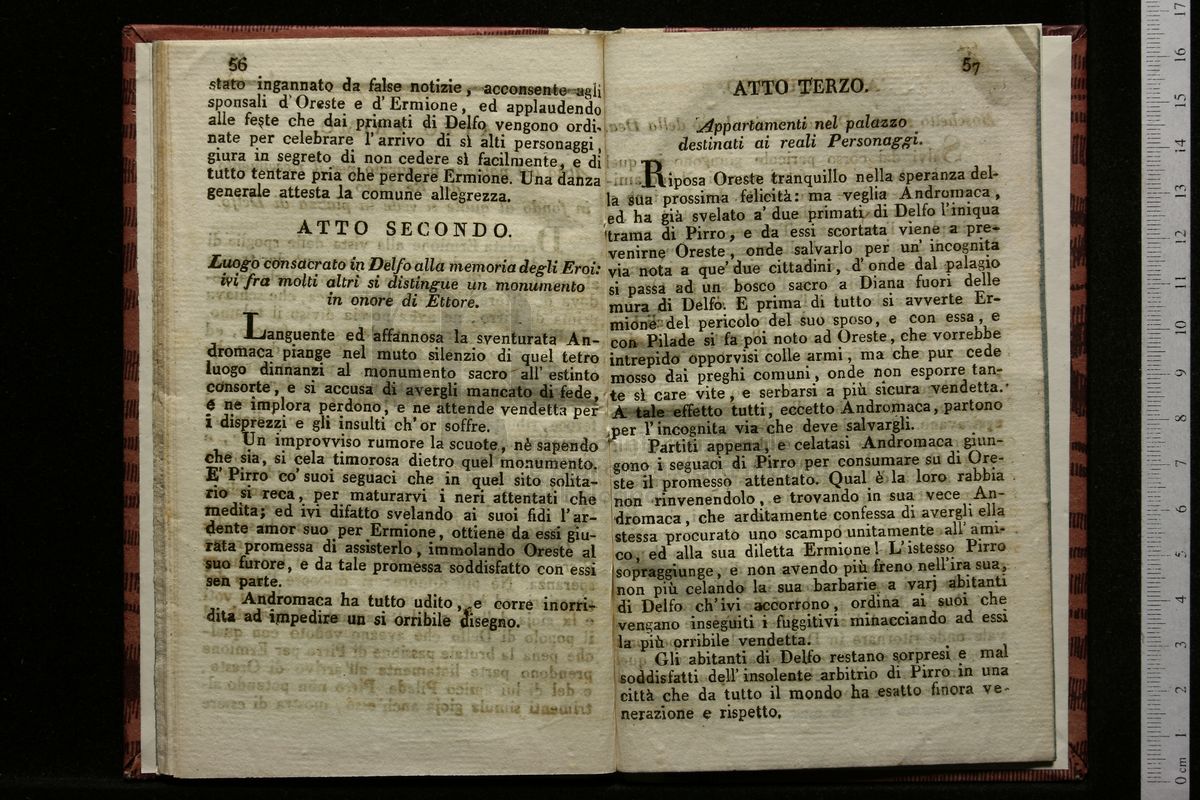 56
stato ingannato da false notizie, acconsente agli
sponsali d'Oreste e d'Ermione, ed applaudendo
alle feste che dai primati di Delfo vengono ordi-
nate per celebrare l'arrivo di sì alti personaggi,
giura in segreto di non cedere sì facilmente, e di
tutto tentare pria che perdere Ermione. Una danza
generale attesta la comune allegrezza.
ATTO SECONDO.
Luogo consacrato in Delfo alla memoria degli Eroi:
ivi fra molti altri si distingue un monumento
in onore di Ettore.
Languente ed affannosa la sventurata An-
dromaca piange nel muto silenzio di quel tetro
luogo dinnanzi al monumento sacro all'estinto
consorte, e si accusa di avergli mancato di fede,
e ne implora perdono, e ne attende vendetta per
i disprezzi e gli insulti ch'or soffre.
Un improvviso rumore la scuote, nè sapendo
che sia, si cela timorosa dietro quel monumento.
E' Pirro co' suoi seguaci che in quel sito solita-
rio si reca, per maturarvi i neri attentati che
medita; ed ivi difatto svelando ai suoi fidi l'ar-
dente amor suo per Ermione, ottiene da essi giu-
rata promessa di assisterlo, immolando Oreste al
suo furore, e da tale promessa soddisfatto con essi
sen parte.
Andromaca ha tutto udito, e corre inorri-
dita ad impedire un si orribile disegno.
57
ATTO TERZO.
Appartamenti nel palazzo
destinati ai reali Personaggi.
Riposa Oreste tranquillo nella speranza del-
la sua prossima felicità: ma veglia Andromaca,
ed ha già svelato a' due primati di Delfo l'iniqua
trama di Pirro, e da essi scortata viene a pre-
venirne Oreste, onde salvarlo per un' incognita
via nota a que' due cittadini, d'onde dal palagio
si passa ad un bosco sacro a Diana fuori delle
mura di Delfo. E prima di tutto si avverte Er-
mione del pericolo del suo sposo, e con essa, e
con Pilade si fa poi noto ad Oreste, che vorrebbe
intrepido opporvisi colle armi, ma che pur cede
mosso dai preghi comuni, onde non esporre tan-
te sì care vite, e serbarsi a più sicura vendetta.
A tale effetto tutti, eccetto Andromaca, partono
per l'incognita via che deve salvargli.
Partiti appena, e celatasi Andromaca giun-
gono i seguaci di Pirro per consumare su di Ore-
ste il promesso attentato. Qual è la loro rabbia
non rinvenendolo, e trovando in sua vece An-
dromaca, che arditamente confessa di avergli ella
stessa procurato uno scampo unitamente all' ami-
co, ed alla sua diletta Ermione! L'istesso Pirro
sopraggiunge, e non avendo più freno nell'ira sua,
non più celando la sua barbarie a varj abitanti
di Delfo ch'ivi accorrono, ordina ai suoi che
vengano inseguiti i fuggitivi minacciando ad essi
la più orribile vendetta.
Gli abitanti di Delfo restano sorpresi e mal
soddisfatti dell'insolente arbitrio di Pirro in una
città che da tutto il mondo ha esatto finora ve-
nerazione e rispetto.
0 cm 1 2 3 4 5 6 7 8 9 10 11 12 13 14 15 16 17